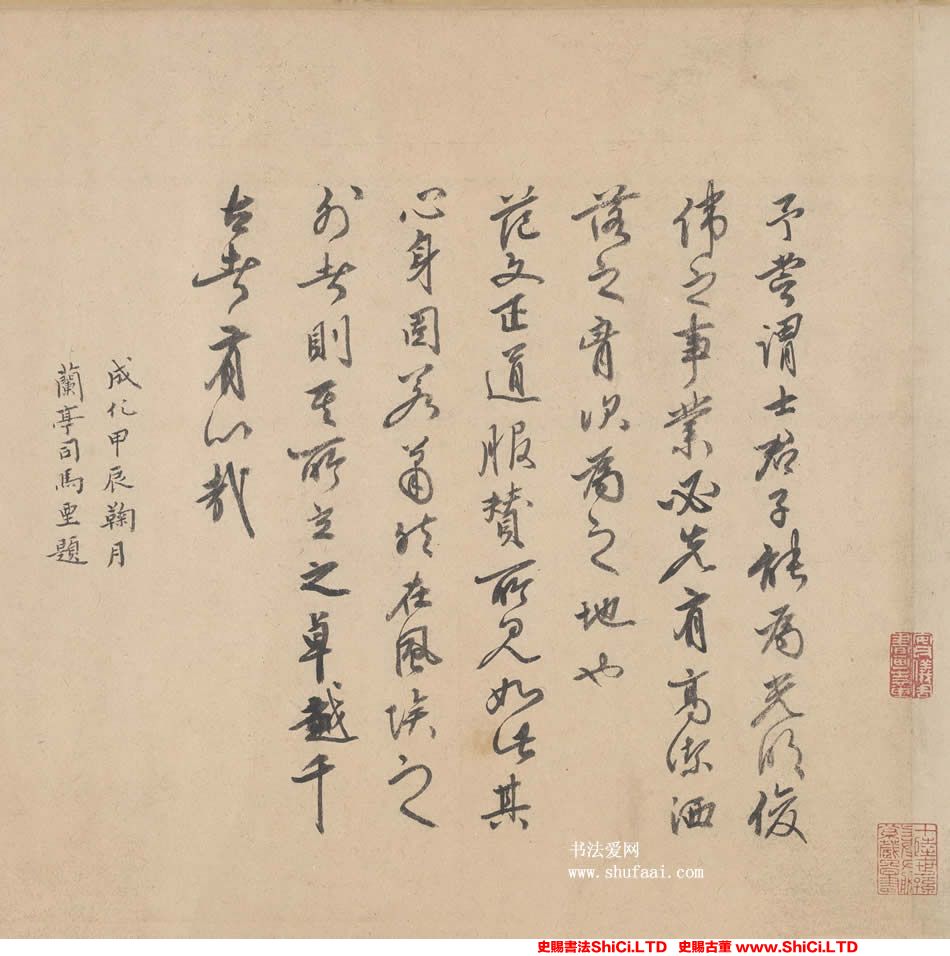 予嘗謂士君子能為光明俊
偉之事業必先有高潔洒
落之胷次為之地也
范文正道服贊所見如此其
心身固若蕭然在風埃之
外者則其所立之卓越千
古者有以哉
成化甲辰鞠月
蘭亭司馬垔題
书法爱网
www.shufaai.com
史賜書法ShiCi.LTD 史賜古董 www.ShiCi.LTD